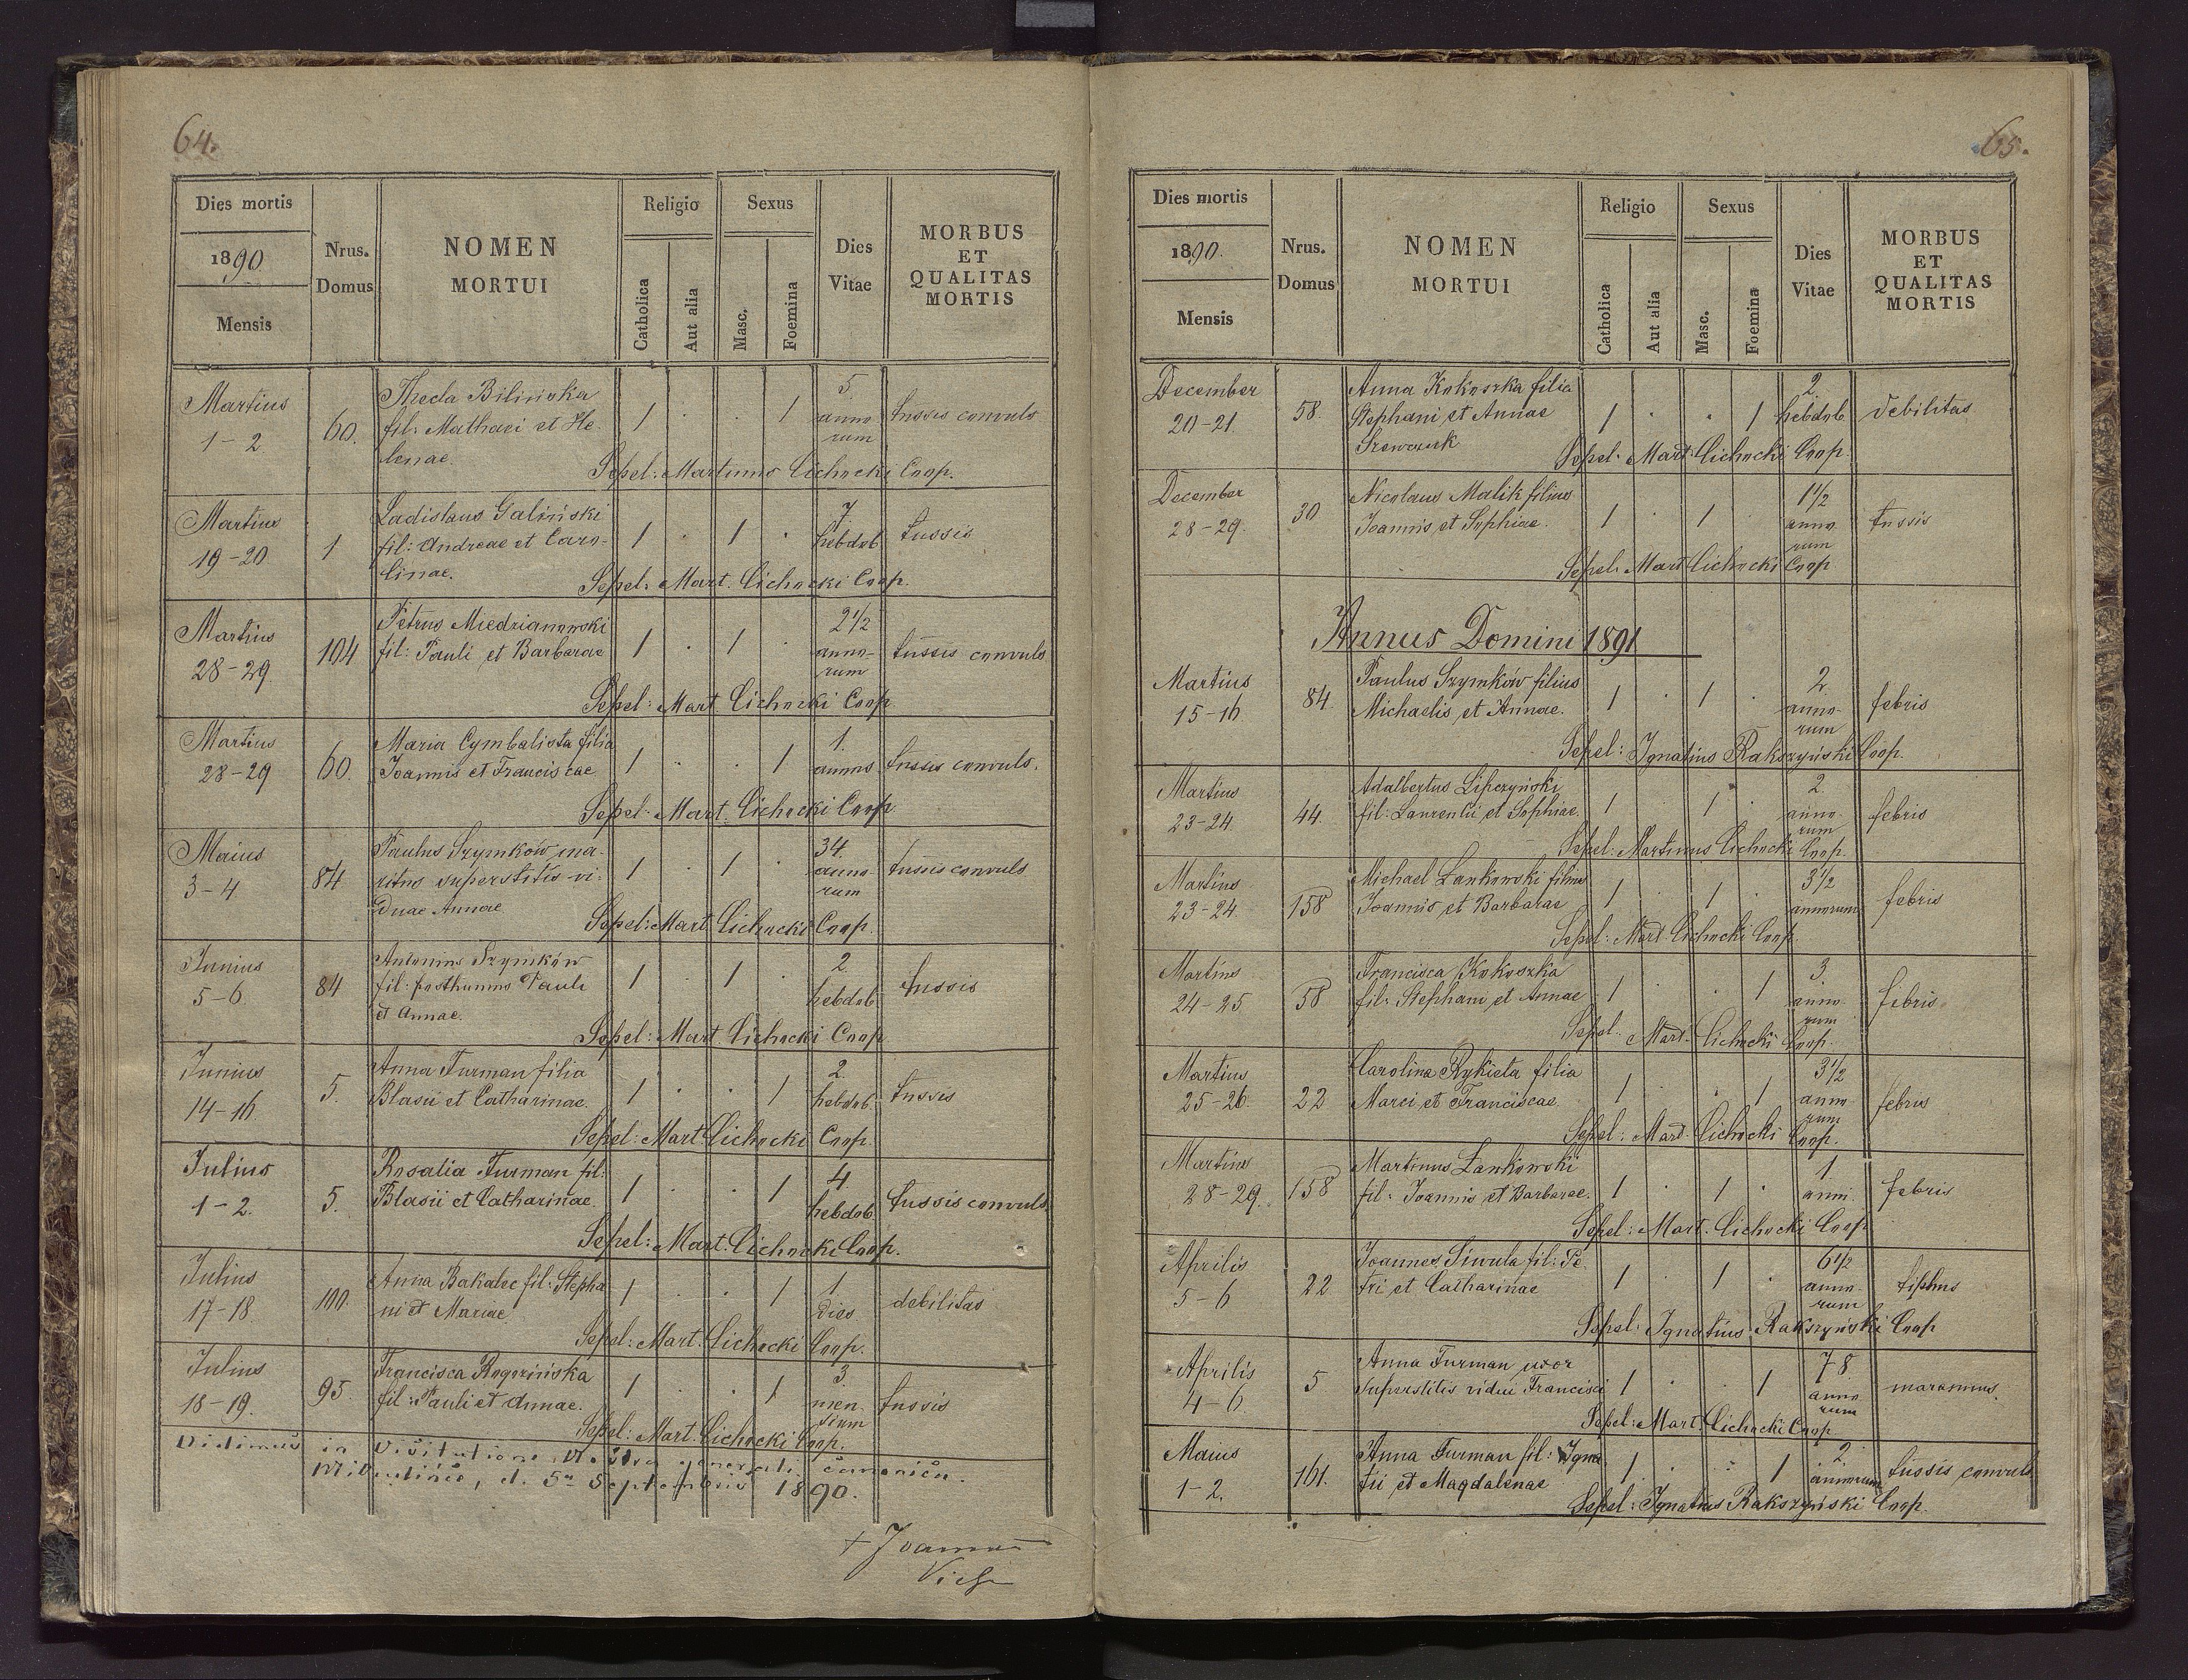 64.
Dies mortis
1890.
Mensis
Nrus.
Domus
NOMEN
MORTUI
Religio
Catholica
Aut alia
Sexus
Masc.
Foemina
Dies
Vitae
MORBUS
ET
QUALITAS
MORTIS
Martius
1-2
60.
Thecla Bilińska
fil: Mathaei et He-
lenae.
1 . . 1
5.
anno
rum
tussis convuls
Sepel: Martinus Cichocki Coop.
Martius
19-20
1
Ladislaus Galiński
fil: Andreae et Caro-
linae.
1 . 1 .
7
hebdob
tussis
Sepel: Mart. Cichocki Coop.
Martius
28-29
104
Petrus Miedzianowski
fil: Pauli et Barbarae
1 . 1 .
2 1/2
anno-
rum
tussis convuls
Sepel: Mart Cichocki Coop
Martius
28-29
60.
Maria Cymbalista filia
Joannis et Franciscae
1 . . 1
1.
annus
tussis convuls.
Sepel: Mart. Cichocki Coop
Maius
3-4
84
Paulus Szymków ma-
ritus superstitis vi-
duae Annae
1 . 1 .
34.
anno
rum
tussis convuls
Sepel: Mart Cichocki Coop.
Junius
5-6.
84
Antonius Szymków
fil: posthumus Pauli
et Annae.
1 . 1 .
2.
hebdob
tussis
Sepel: Mart Cichocki Coop
Junius
14-16
5.
Anna Furman filia
Blasii et Catharinae.
1 . . 1
2
hebdob.
tussis
Sepel: Mart. Cichocki Coop.
Julius
1-2.
5.
Rosalia Furman fil:
Blasii et Catharinae.
1 . . 1
4
hebdob
tussis convuls
Sepel: Mart. Cichocki Coop.
Julius
17-18.
100.
Anna Bakalec fil: Stepha
ni et Mariae.
1 . . 1
1
dies
debilitas
Sepel: Mart. Cichocki Coop.
Julius
18-19.
95.
Francisca Rogozińska
fil: Pauli et Annae.
1 . . 1
3
men-
sium
tussis
Sepel: Mart. Cichocki Coop.
Vidimus in Visitatione Nostra generali canonica.
d. 5a Septembris 1890.
+ Joannes
65.
Dies mortis
1890.
Mensis
Nrus.
Domus
NOMEN
MORTUI
Religio
Catholica
Aut alia
Sexus
Masc.
Foemina
Dies
Vitae
MORBUS
ET
QUALITAS
MORTIS
December
20-21.
58.
Anna Kokoszka filia
Stephani et Annae
Szewczuk
1 . . 1
2.
hebdob
debilitas
Sepel: Mart Cichocki Coop.
December
28-29.
30
Nicolaus Malik filius
Joannis et Sophiae.
1 . 1
1 1/2
anno
rum
tussis
Sepel: Mart Cichocki Coop
Annus Domini 1891
Martius
15-16
84.
Paulus Szymków filius
Michaelis et Annae.
1 . 1 .
2.
anno-
rum
febris
Sepel: Ignatius Rakszyński Coop.
Martius
23-24.
44.
Adalbertus Lipczyński
fil: Laurentii et Sophiae.
1 1 .
2.
anno-
rum
febris
Sepel: Martinus Cichocki Coop.
Martius
23-24.
158
Michael Lankowski filius
Joannis et Barbarae
1 . 1 .
3 1/2
annorum
febris
Sepel: Mart. Cichocki Coop.
Martius
24-25
58
Francisca Kokoszka
fil: Stephani et Annae
1 . . 1
3
anno-
rum
febris
Sepel: Mart. Cichocki Coop.
Martius
25-26.
22
Carolina Rykieta filia
Marci et Franciscae
1 . . 1
3 1/2
anno-
rum
febris
Sepel: Mart. Cichocki Coop.
Martius
28-29.
158
Martinus Lankowski
fil: Joannis et Barbarae.
1 . 1 .
1.
anni
febris
Sepel: Mart. Cichocki Coop
Aprilis
5-6
22
Joannes Siwula fil: Pe
tri et Catharinae
1 . 1 .
6 1/2
anno-
rum
tiphus
Sepel: Ignatius Rakszyński Coop
Aprilis
4-6.
5
Anna Furman uxor
superstitis vidui Francisci
1 . . 1
78
anno
rum
marasmus.
Sepel: Mart. Cichocki Coop
Maius
1-2.
161.
Anna Furman fil: Igna
tii et Magdalenae
1 . . 1
2.
annorum
tussis convuls
Sepel: Ignatius Rakszyński Coop.